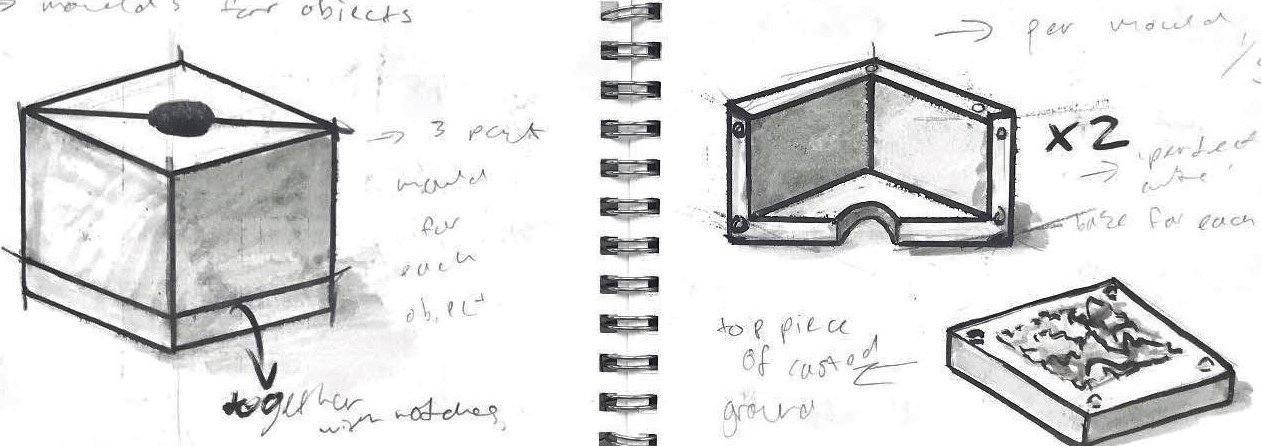 moulds for objects
→ 3 part
mould
for
each
object
together
with notches
→ per mould
x2
→ 'perfect
base for each
top piece
of custod
ground